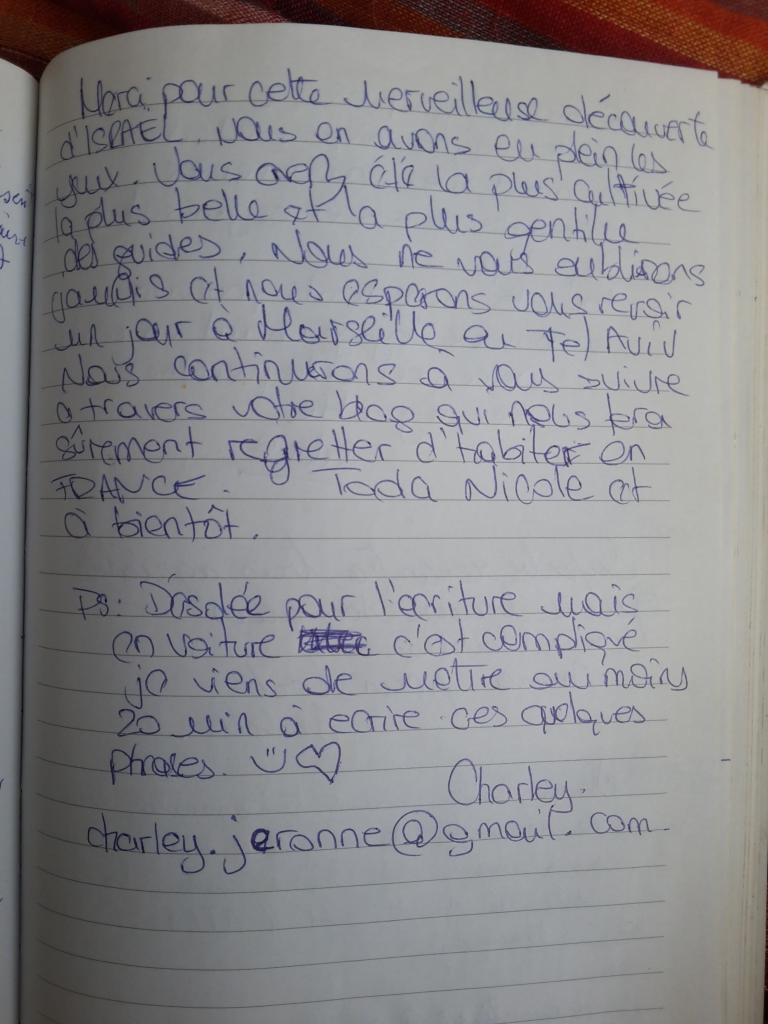 Merci pour cette merveilleuse découverte
d'ISRAEL. Nous en avons eu plein les
yeux. Vous avez été la plus cultivée
la plus belle et la plus gentille
des guides. Nous ne vous oublirons
jamais et nous esperons vous revoir
un jour à Marseille ou Tel Aviv
Nous continuerons à vous suivre
a travers votre blog qui nous fera
sûrement regretter d'habiter en
FRANCE. Toda Nicole et
à bientôt.
Ps: Désolée pour l'ecriture mais
en voiture c'est compliqué
je viens de metre au moins
20 min à ecrire ces quelques
phrases. :) ♡
Charley.
charley.jeronne@gmail.com